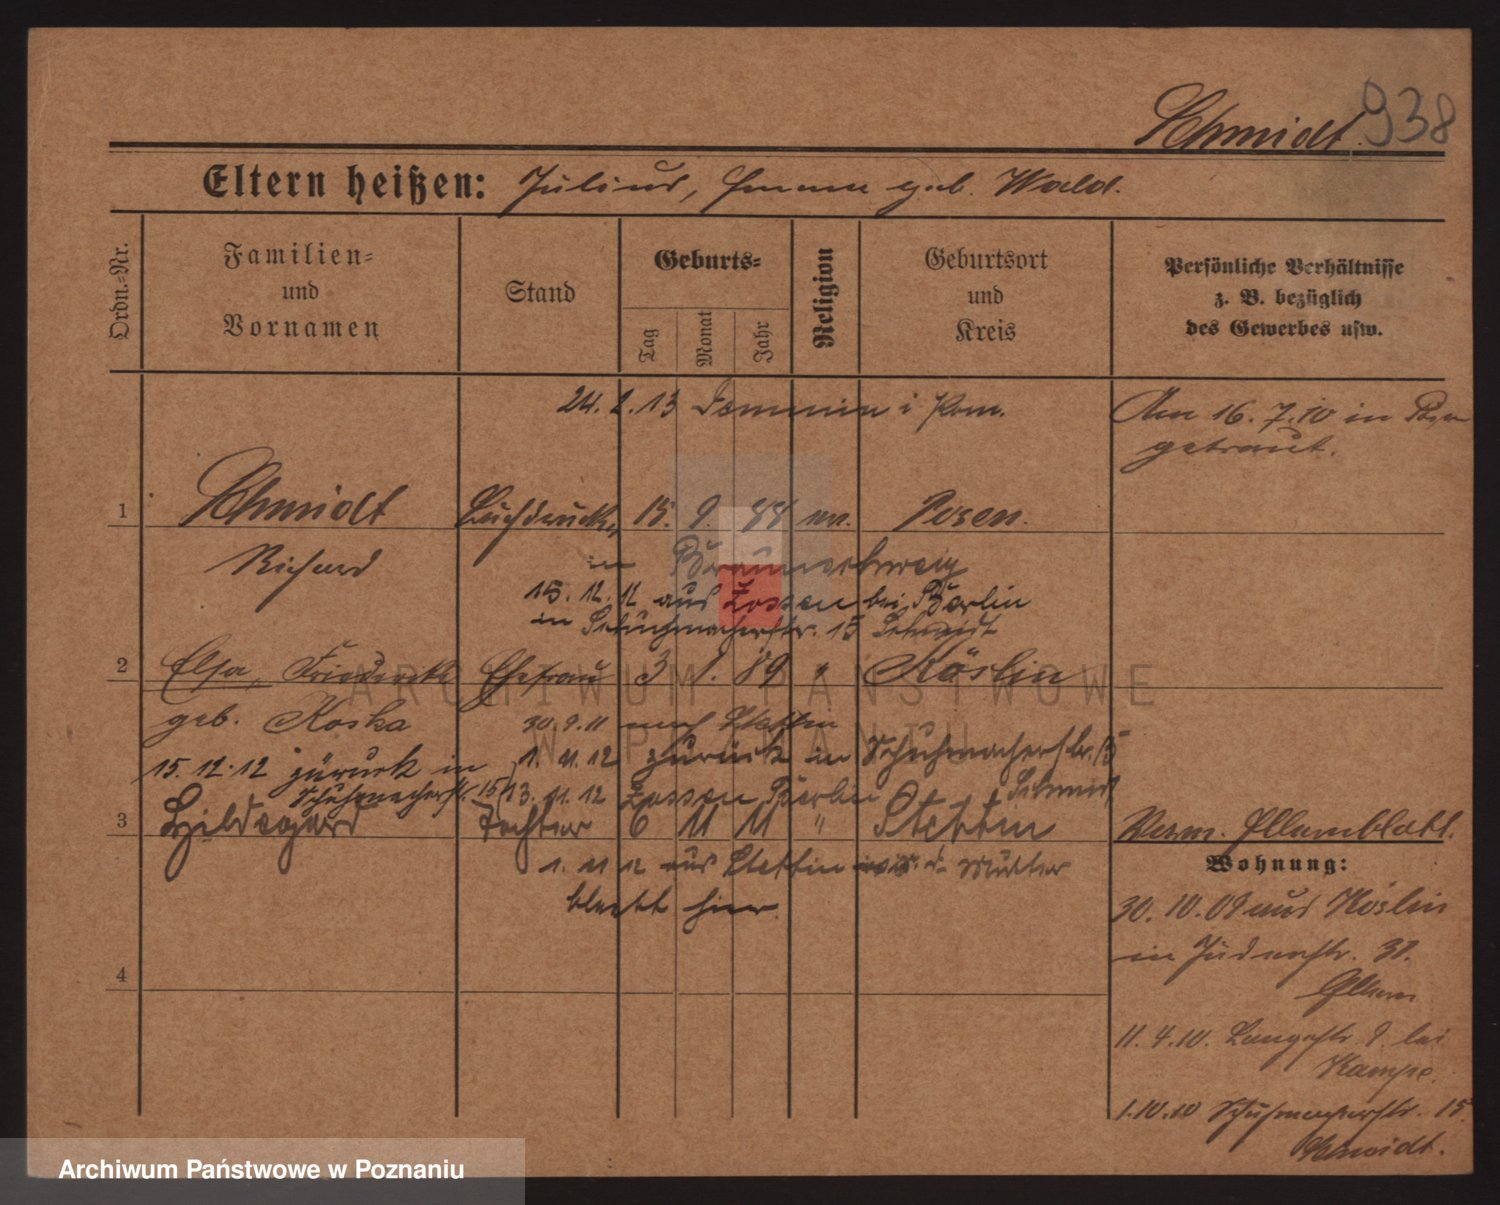 938
Schmidt.
Eltern heißen: Julius, Emma geb. Wald.
Ordn.=Nr.
Familien=
und
Vornamen
Stand
Geburts=
Tag
Monat
Jahr
Religion
Geburtsort
und
Kreis
Persönliche Verhältnisse
z. B. bezüglich
des Gewerbes usw.
24. 2. 13 Demmin i Pom.
Am 16. 7. 10 in
getraut.
1 Schmidt Buchdrucker 15. 9. 88 Posen.
Richard
in Braunschweig
15. 12. 12 aus Zossen bei Berlin
in Schuhmacherstr. 15 Schmidt
2 Elsa, Friederike Ehefrau 3 1. 89 " Köslin
geb. Koska
30.9.11 nach Stettin
1. 11. 12 zurück in Schuhmacherstr. 15
Schmidt
15. 12. 12 zurück in
Schuhmacherstr. 15
13. 11. 12 Zossen Berlin
3 Hildegard Tochter 6 11 11 " Stettin
1. 11 12 aus Stettin Mutter
bleibt hier.
4
Verm. Elternblatt.
Wohnung:
30. 10. 09 aus Köslin
in Judenstr. 31.
11. 4. 10. Langestr 9. bei
Kampe.
1. 10. 10 Schuhmacherstr. 15
Schmidt.
ARCHIWUM PAŃSTWOWE
W POZNANIU
Archiwum Państwowe w Poznaniu